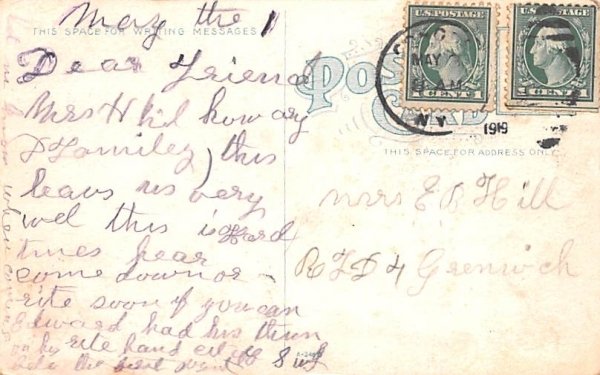 May the 1
THIS SPACE FOR WRITING MESSAGES
Dear friend
Mrs Hill how ar y
& Familey) this
leavs us very
wel this is Hard
times hear
come down or
rite soon if you can
Edward had his thum
on his rite hand
let me know when coming
POST CARD
U.S. POSTAGE
1 CENT 1
U.S. POSTAGE
CENT
MAY
N.Y.
1919
THIS SPACE FOR ADDRESS ONLY
Mrs E B Hill
RFD 4 Grenwich